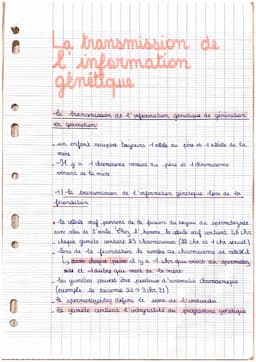 La transmission de
l'information
génétique
- la transmission de l'information génétique de génération
en génération
- un enfant récupère toujours 1 allèle au père et 1 allèle de la
mère
- Il y a 1 chromosome venant du père et 1 chromosome
venant de la mère
- 1) la transmission de l'information génétique lors de la
fécondation
- la cellule œuf provient de la fusion du noyau du spermatozoïde
avec celui de l'ovule. Chez l'homme la cellule œuf contient 46 chr
chaque gamète contient 23 chromosomes (22 chr et 1 chr sexuel)
- lors de la fécondation le nombre de chromosome se rétablit
↳ dans chaque paire il y a 1 chr qui vient du spermatozo
ïde et l'autre qui vient de la mère
- les gamètes peuvent être porteur d'anomalie chromosomique
(exemple la trisomie 21 → 3 chr 21)
- le spermatozoïde définit le sexe de l'individu
- la gamète contient l'intégralité du programme génétique